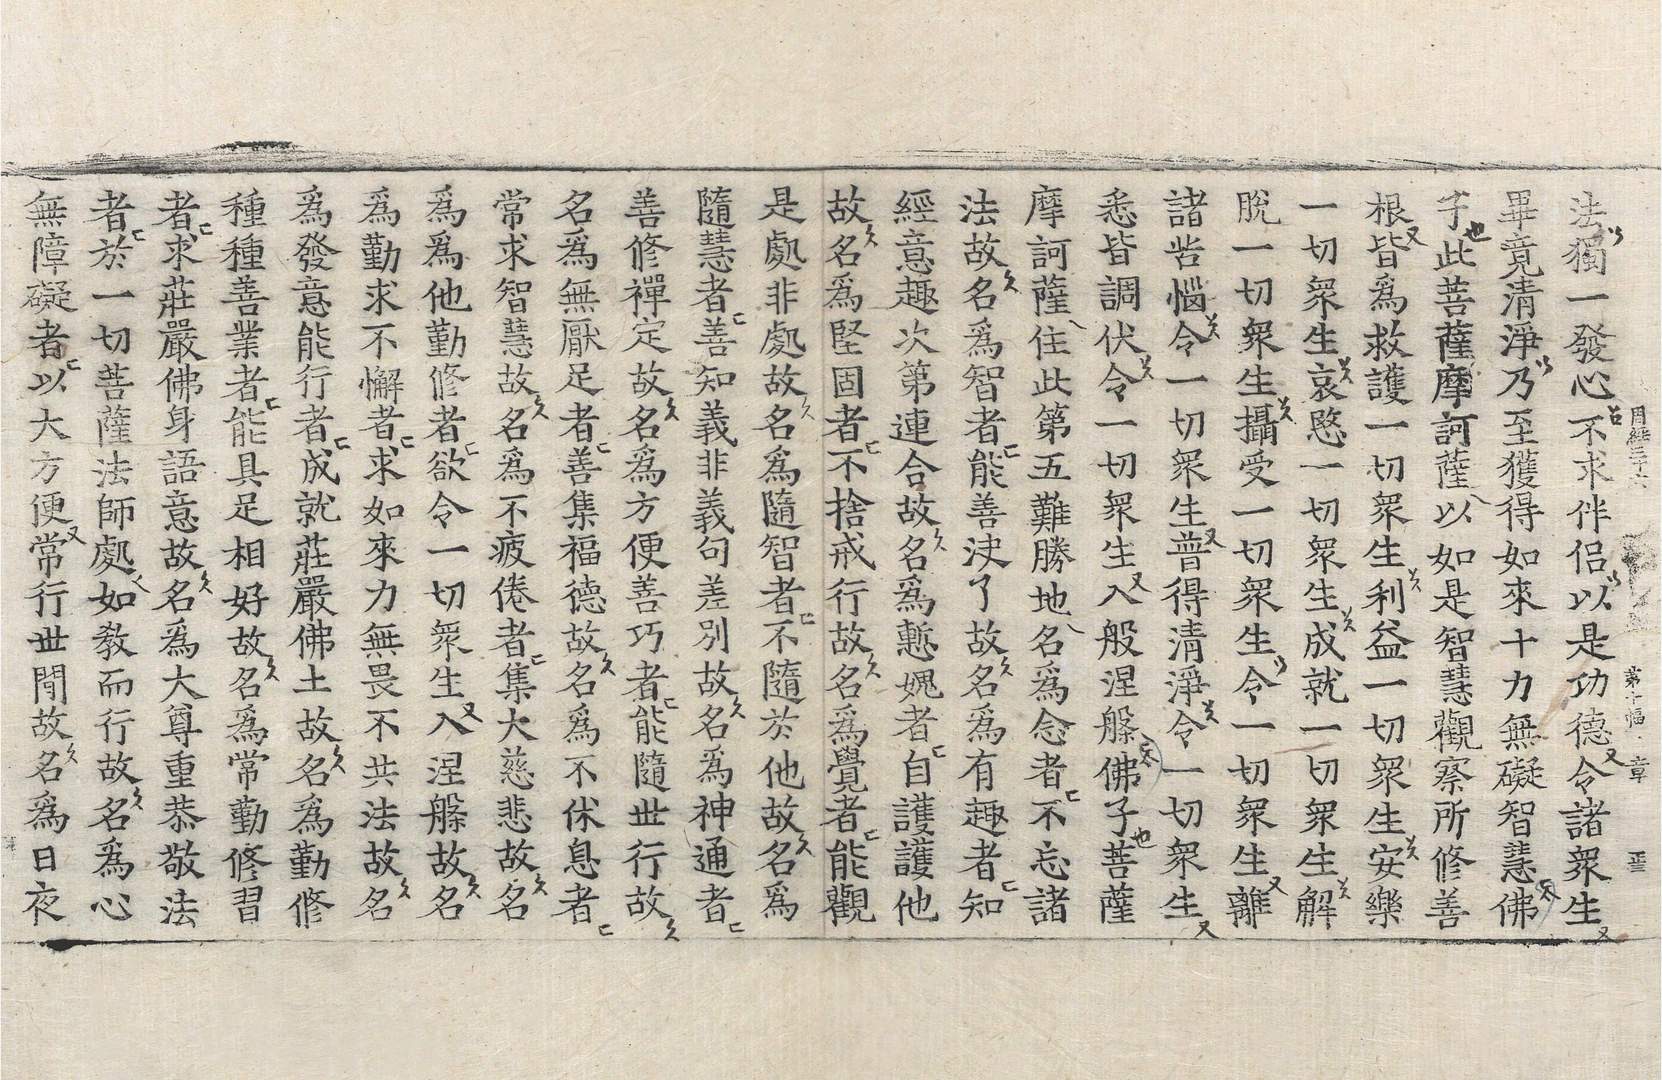 法獨一發心不求伴侶以是功德令諸衆生
畢竟清淨乃至獲得如來十力無礙智慧佛
子此菩薩摩訶薩以如是智慧觀察所修善
根皆爲救護一切衆生利益一切衆生安樂
一切衆生哀愍一切衆生成就一切衆生解
脫一切衆生攝受一切衆生令一切衆生離
諸苦惱令一切衆生普得清淨令一切衆生
悉皆調伏令一切衆生入般涅槃佛子菩薩
摩訶薩住此第五難勝地名爲念者不忘諸
法故名爲智者能善決了故名爲有趣者知
經意趣次第連合故名爲慙愧者自護護他
故名爲堅固者不捨戒行故名爲覺者能觀
是處非處故名爲隨智者不隨於他故名爲
隨慧者善知義非義句差別故名爲神通者
善修禪定故名爲方便善巧者能隨世行故
名爲無厭足者善集福德故名爲不休息者
常求智慧故名爲不疲倦者集大慈悲故名
爲爲他勤修者欲令一切衆生入涅槃故名
爲勤求不懈者求如來力無畏不共法故名
爲發意能行者成就莊嚴佛土故名爲勤修
種種善業者能具足相好故名爲常勤修習
者求莊嚴佛身語意故名爲大尊重恭敬法
者於一切菩薩法師處如教而行故名爲心
無障礙者以大方便常行世間故名爲日夜